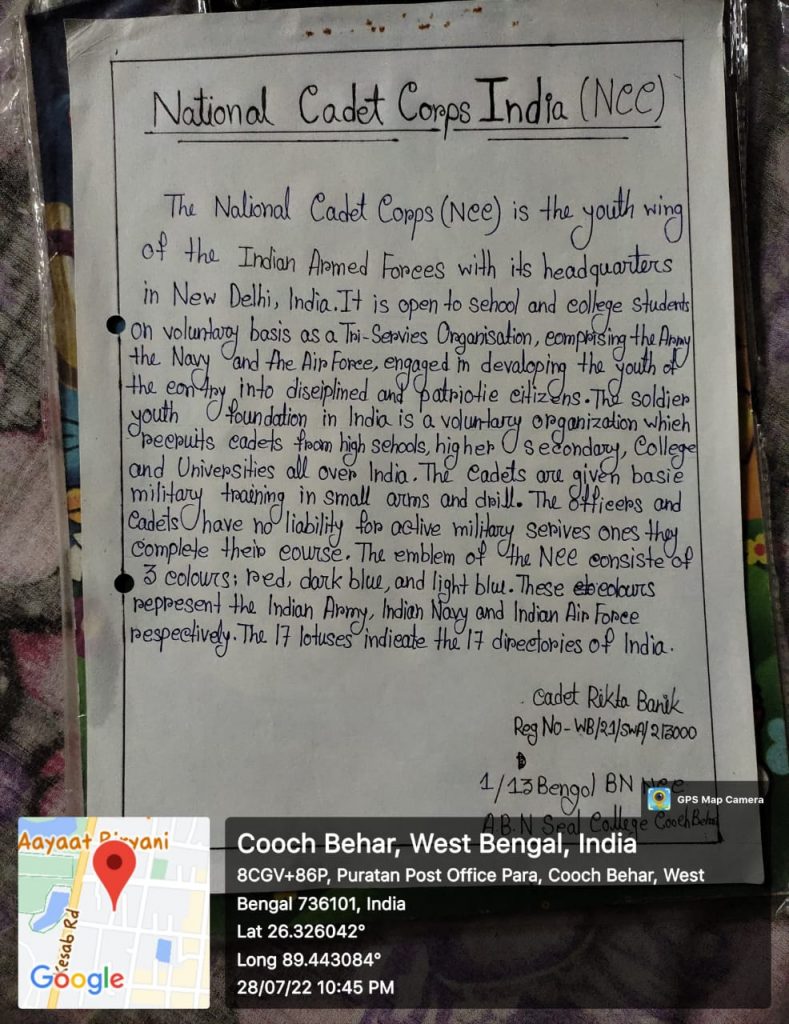 National Cadet Corps India (NCC)
The National Cadet Corps (NCC) is the youth wing
of the Indian Armed Forces with its headquarters
in New Delhi, India. It is open to school and college students
on voluntary basis as a Tri-Servies Organisation, comprising the Army
the Navy and the Air Force, engaged in devaloping the youth of
the contry into disciplined and patriotic citizens. The soldier
youth foundation in India is a voluntary organization which
recruits cadets from high schools, higher secondary, College
and Universities all over India. The Cadets are given basic
military training in small arms and drill. The officers and
Cadets have no liability for active military serives ones they
complete their course. The emblem of the NCC consiste of
3 colours; red, dark blue, and light blue. These colours
represent the Indian Army, Indian Navy and Indian Air Force
respectively. The 17 lotuses indicate the 17 directories of India.
Cadet Rikta Banik
Reg No - WB/21/SWA/213000
1/13 Bengal BN NCC
A.B.N Seal College Cooch Behar
GPS Map Camera
Aayaat Biryani
Kesab Rd
Google
Cooch Behar, West Bengal, India
8CGV+86P, Puratan Post Office Para, Cooch Behar, West
Bengal 736101, India
Lat 26.326042°
Long 89.443084°
28/07/22 10:45 PM